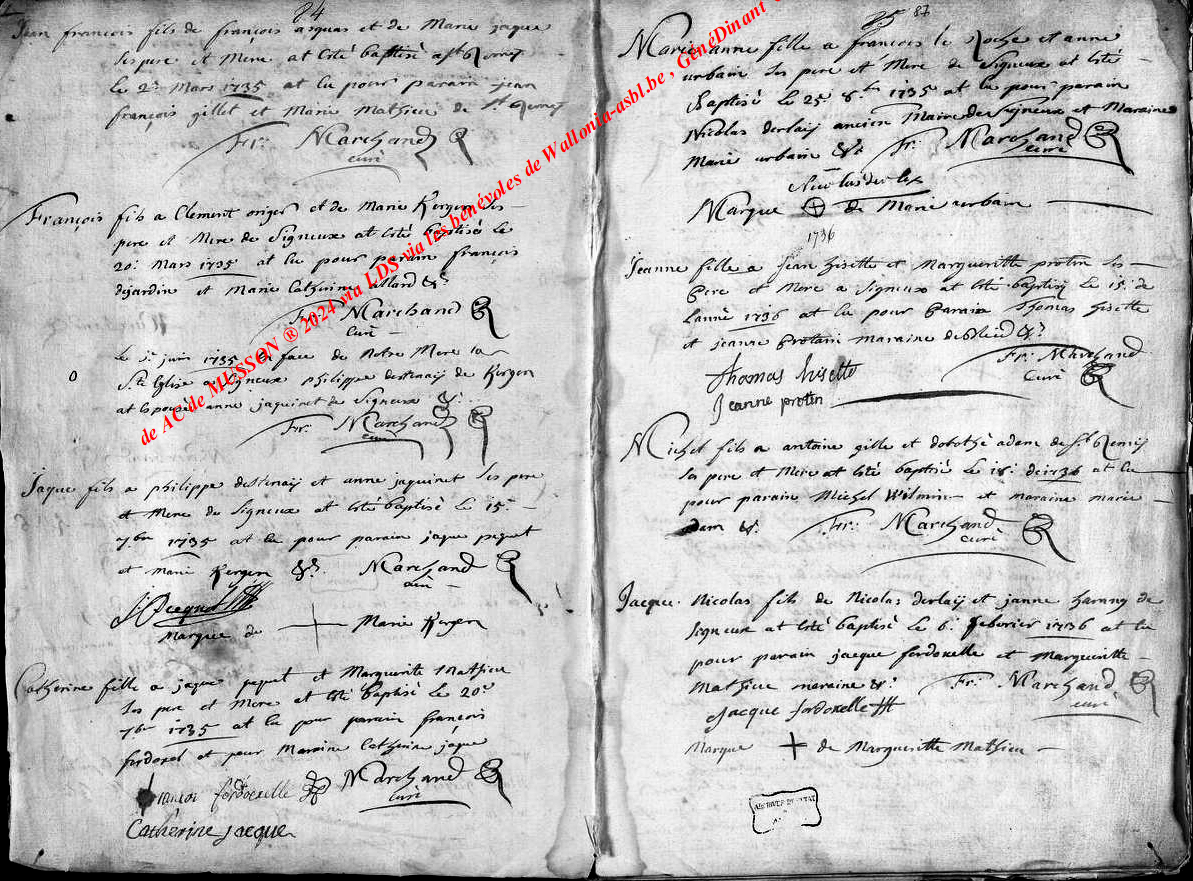 84
Jean françois fils de françois asquas et de Marie jaque
ses pere et Mere at Esté baptisé a St Remy
Le 2e Mars 1735 at eu pour parain jean
françois gillet et Marie Mathieu de St Remy
Fr: Marchand
curé
François fils a Clement origer et de Marie Kergen ses
pere et Mere de Signeux at Esté baptisés Le
20e Mars 1735 at eu pour parain françois
dejardin et Marie Catherine allard &c
Fr: Marchand
Curé
Le juin 1735 En face de Notre Mere la
Ste Eglise a Signeux philippe destenaij de Kergen
at Espousé anne jaquinet de Signeux
Fr: Marchand
curé
Jaque fils a philippe destenaij et anne jaquinet ses pere
et Mere de Signeux at Esté baptisé Le 15e
7bre 1735 at eu pour parain jaque pequet
et Marie Kergen &c. Marchand
curé
J: Pecquet
Marque de + Marie Kergen
Catherine fille a jaque pequet et Marguerite Mathieu
ses pere et Mere at Esté baptisé Le 20e
7bre 1735 at eu pour parain françois
fordoxel et pour Maraine Catherine jaque
françoi fordoxelle Marchand
curé
Catherine jacque
85 87
Marie anne fille a francois le Roche et anne
urbain ses pere et Mere de Signeux at Esté
Baptisé Le 25e 8bre 1735 at eu pour parain
Nicolas derlaij ancien Maire de Signeux et Maraine
Marie urbain &c. Fr: Marchand
curé
Nicolas der lex
Marque de Marie urbain
1736
Jeanne fille a Jean hisette et Marguerite protin ses
Pere et Mere a Signeux at Esté baptisés Le 15e de
Lanné 1736 at eu pour Parain Thomas hisette
et jeanne Protain maraine &c
Fr: Marchand
Curé
Thomas hisette
Jeanne protin
Michel fils a antoine gille et dorothé adam de St Remij
ses pere et Mere at Esté baptisé Le 18e de 1736 at eu
pour parain Michel Wilmin et maraine marie
adam &c. Fr: Marchand
curé
Jacque Nicolas fils de Nicolas derlaij et janne harnny de
Signeux at Esté baptisé Le 6e febverier 1736 at eu
pour parain jacque fordoxelle et Marguerite
Mathieu maraine &c. Fr: Marchand
curé
Jacque fordoxelle
Marque + de Marguerite Mathieu
ARCHIVES DE L'ETAT
de AC de MUSSON ® 2024 via LDS via les bénévoles de Wallonia-asbl.be , GénéDinant